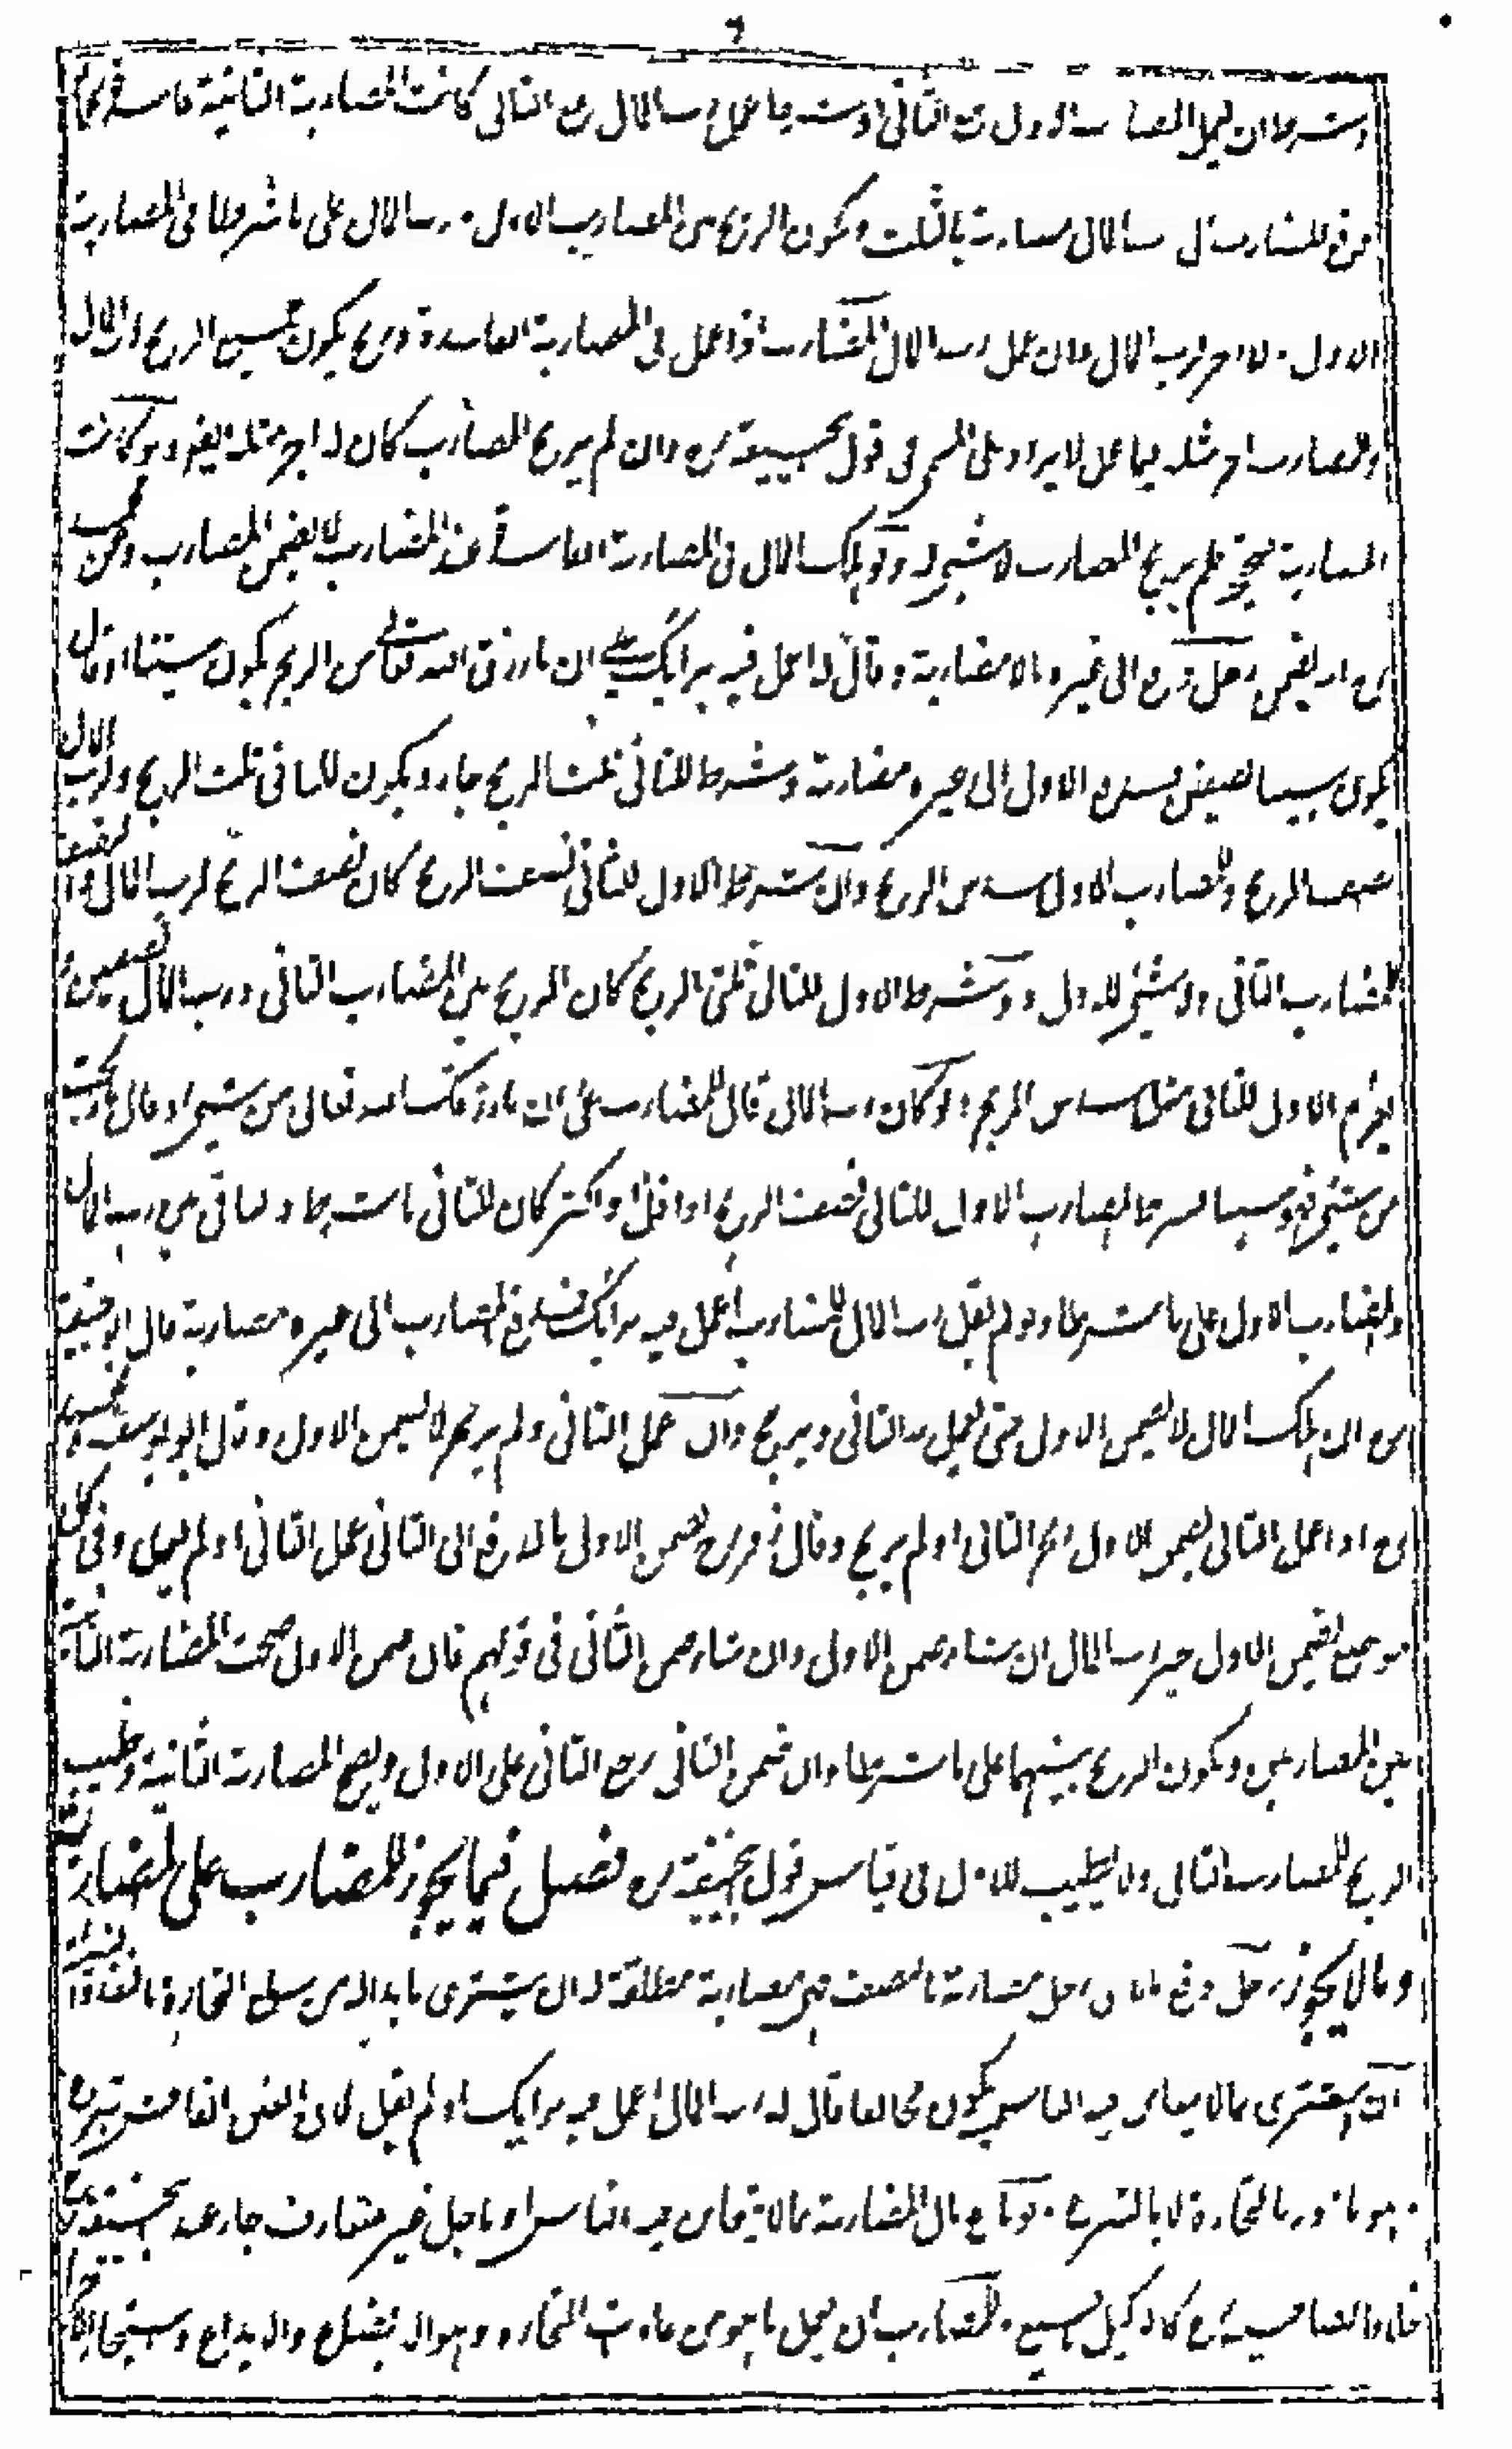 وشرط ان يعمل المضارب الاول مع الثانى او شرط عمل رب المال مع الثانى كانت المضاربة الثانية فاسدة
دفع المضارب الى رب المال مضاربة بالثلث ويكون الربح بين المضارب الاول ورب المال على ما شرطا فى المضاربة
الاولى ولا اجر لرب المال وان عمل رب المال المضارب اذا عمل فى المضاربة الفاسدة وربح يكون جميع الربح لرب المال
وللمضارب اجر مثله فيما عمل لا يزاد على المسمى فى قول ابى حنيفة رح وان لم يربح المضارب كان له اجر مثله ايضا ولو كانت
المضاربة صحيحة فلم يربح المضارب لا شئ له ولو هلك المال فى المضاربة الفاسدة عند المضارب لا يضمن المضارب وعن محمد
رح انه يضمن رجل دفع الى غيره مالا مضاربة وقال له اعمل فيه برأيك على ان ما رزق الله تعالى من الربح يكون بيننا او قال
يكون بيننا نصفين فدفع الاول الى غيره مضاربة وشرط للثانى ثلث الربح جاز ويكون للثانى ثلث الربح ولرب المال
نصف الربح وللمضارب الاول سدس الربح وان شرط الاول للثانى نصف الربح كان نصف الربح لرب المال والنصف
للمضارب الثانى ولا شئ للاول ولو شرط الاول للثانى ثلثى الربح كان الربح بين المضارب الثانى ورب المال نصفين
يغرم الاول للثانى مثل سدس الربح ولو كان رب المال قال للمضارب على ان ما رزقك الله تعالى من شئ او قال ما ربحت
من شئ فهو بيننا فشرط المضارب الاول للثانى نصف الربح او اقل او اكثر كان للثانى ما شرط والباقى بين رب المال
والمضارب الاول على ما شرطا ولو لم يقل رب المال للمضارب اعمل فيه برأيك فدفع المضارب الى غيره مضاربة قال ابو حنيفة
رح ان هلك المال لا يضمن الاول حتى يعمل به الثانى ويربح وان عمل الثانى ولم يربح لا يضمن الاول وقال ابو يوسف ومحمد
رح اذا عمل الثانى يضمن الاول ربح الثانى او لم يربح وقال زفر رح يضمن الاول بالدفع الى الثانى عمل الثانى او لم يعمل وفى كل
موضع يضمن الاول خير رب المال ان شاء ضمن الاول وان شاء ضمن الثانى فى قولهم فان ضمن الاول صحت المضاربة الثانية
بين المضاربين ويكون الربح بينهما على ما شرطا وان ضمن الثانى رجع الثانى على الاول ويصح المضاربة الثانية ويطيب
الربح للمضارب الثانى ولا يطيب للاول فى قياس قول ابى حنيفة رح فصل فيما يجوز للمضارب على المضاربة
وما لا يجوز رجل دفع مالا الى رجل مضاربة بالنصف فهى مضاربة مطلقة له ان يشترى ما بدا له من سلع التجارة بالنقد
ان اشترى بما لا يتغابن فيه الناس يكون مخالفا قال له رب المال اعمل فيه برأيك او لم يقل لان الغبن الفاحش تبرع
وهو مأذون بالتجارة لا بالتبرع ولو باع مال المضاربة بما لا يتغابن فيه الناس او باجل غير متعارف جاز عند ابى حنيفة رح
خلافا لصاحبيه رح كالوكيل بالبيع وللمضارب ان يعمل ما هو من عادات التجار وهو الابضاع والايداع واستيجار